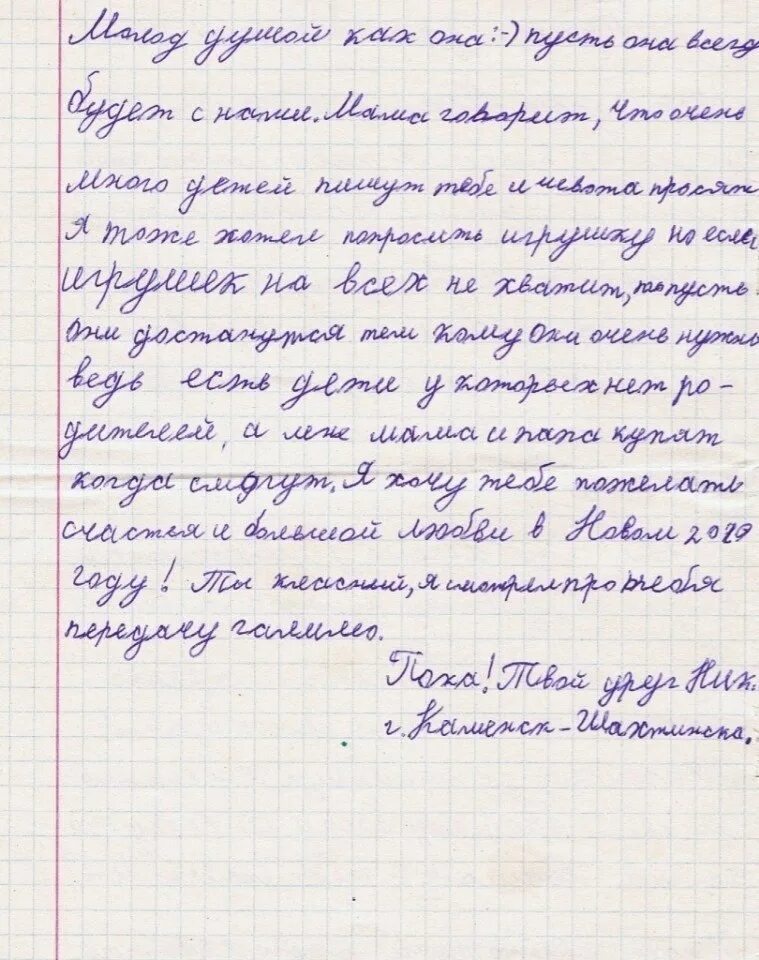 Молод душой как она :-) пусть она всегд
будет с нами. Мама говорит, что очень
много детей пишут тебе и просят
Я тоже хотел попросить игрушку но если
игрушек на всех не хватит, то пусть
они достанутся тем кому они очень нужны
ведь есть дети у которых нет ро-
дителей, а мне мама и папа купят
когда смогут. Я хочу тебе пожелать
счастья и большой любви в Новом 2019
году! Ты класный, я смотрел про тебя
передачу галилео.
Пока! Твой друг Ник.
г. Каменск-Шахтинска.